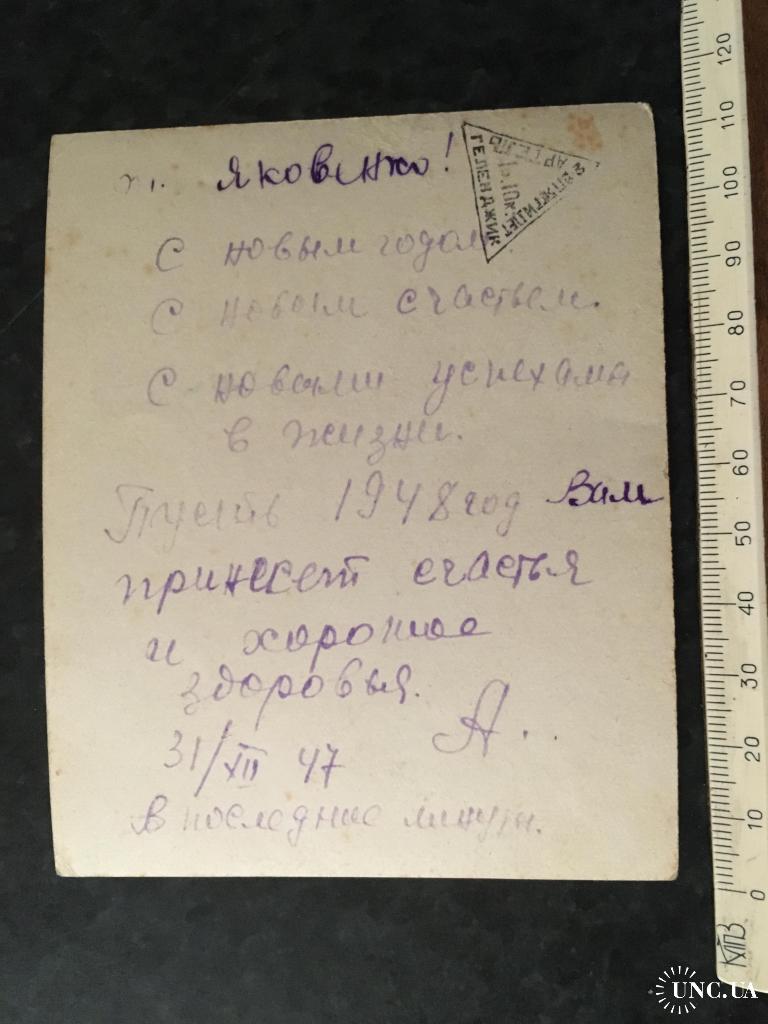 Яковенко!
С новым годом
С новым счастьем.
С новыми успехами
в жизни.
Пусть 1948 год Вам
принесет счастья
и хорошее
здоровья.
А.
31/XII 47
в последние минуты.
ГЕЛЕНДЖИК
АРТЕЛЬ
120
110
100
90
80
70
60
50
40
30
20
10
0
КПВЗ
UNC.UA